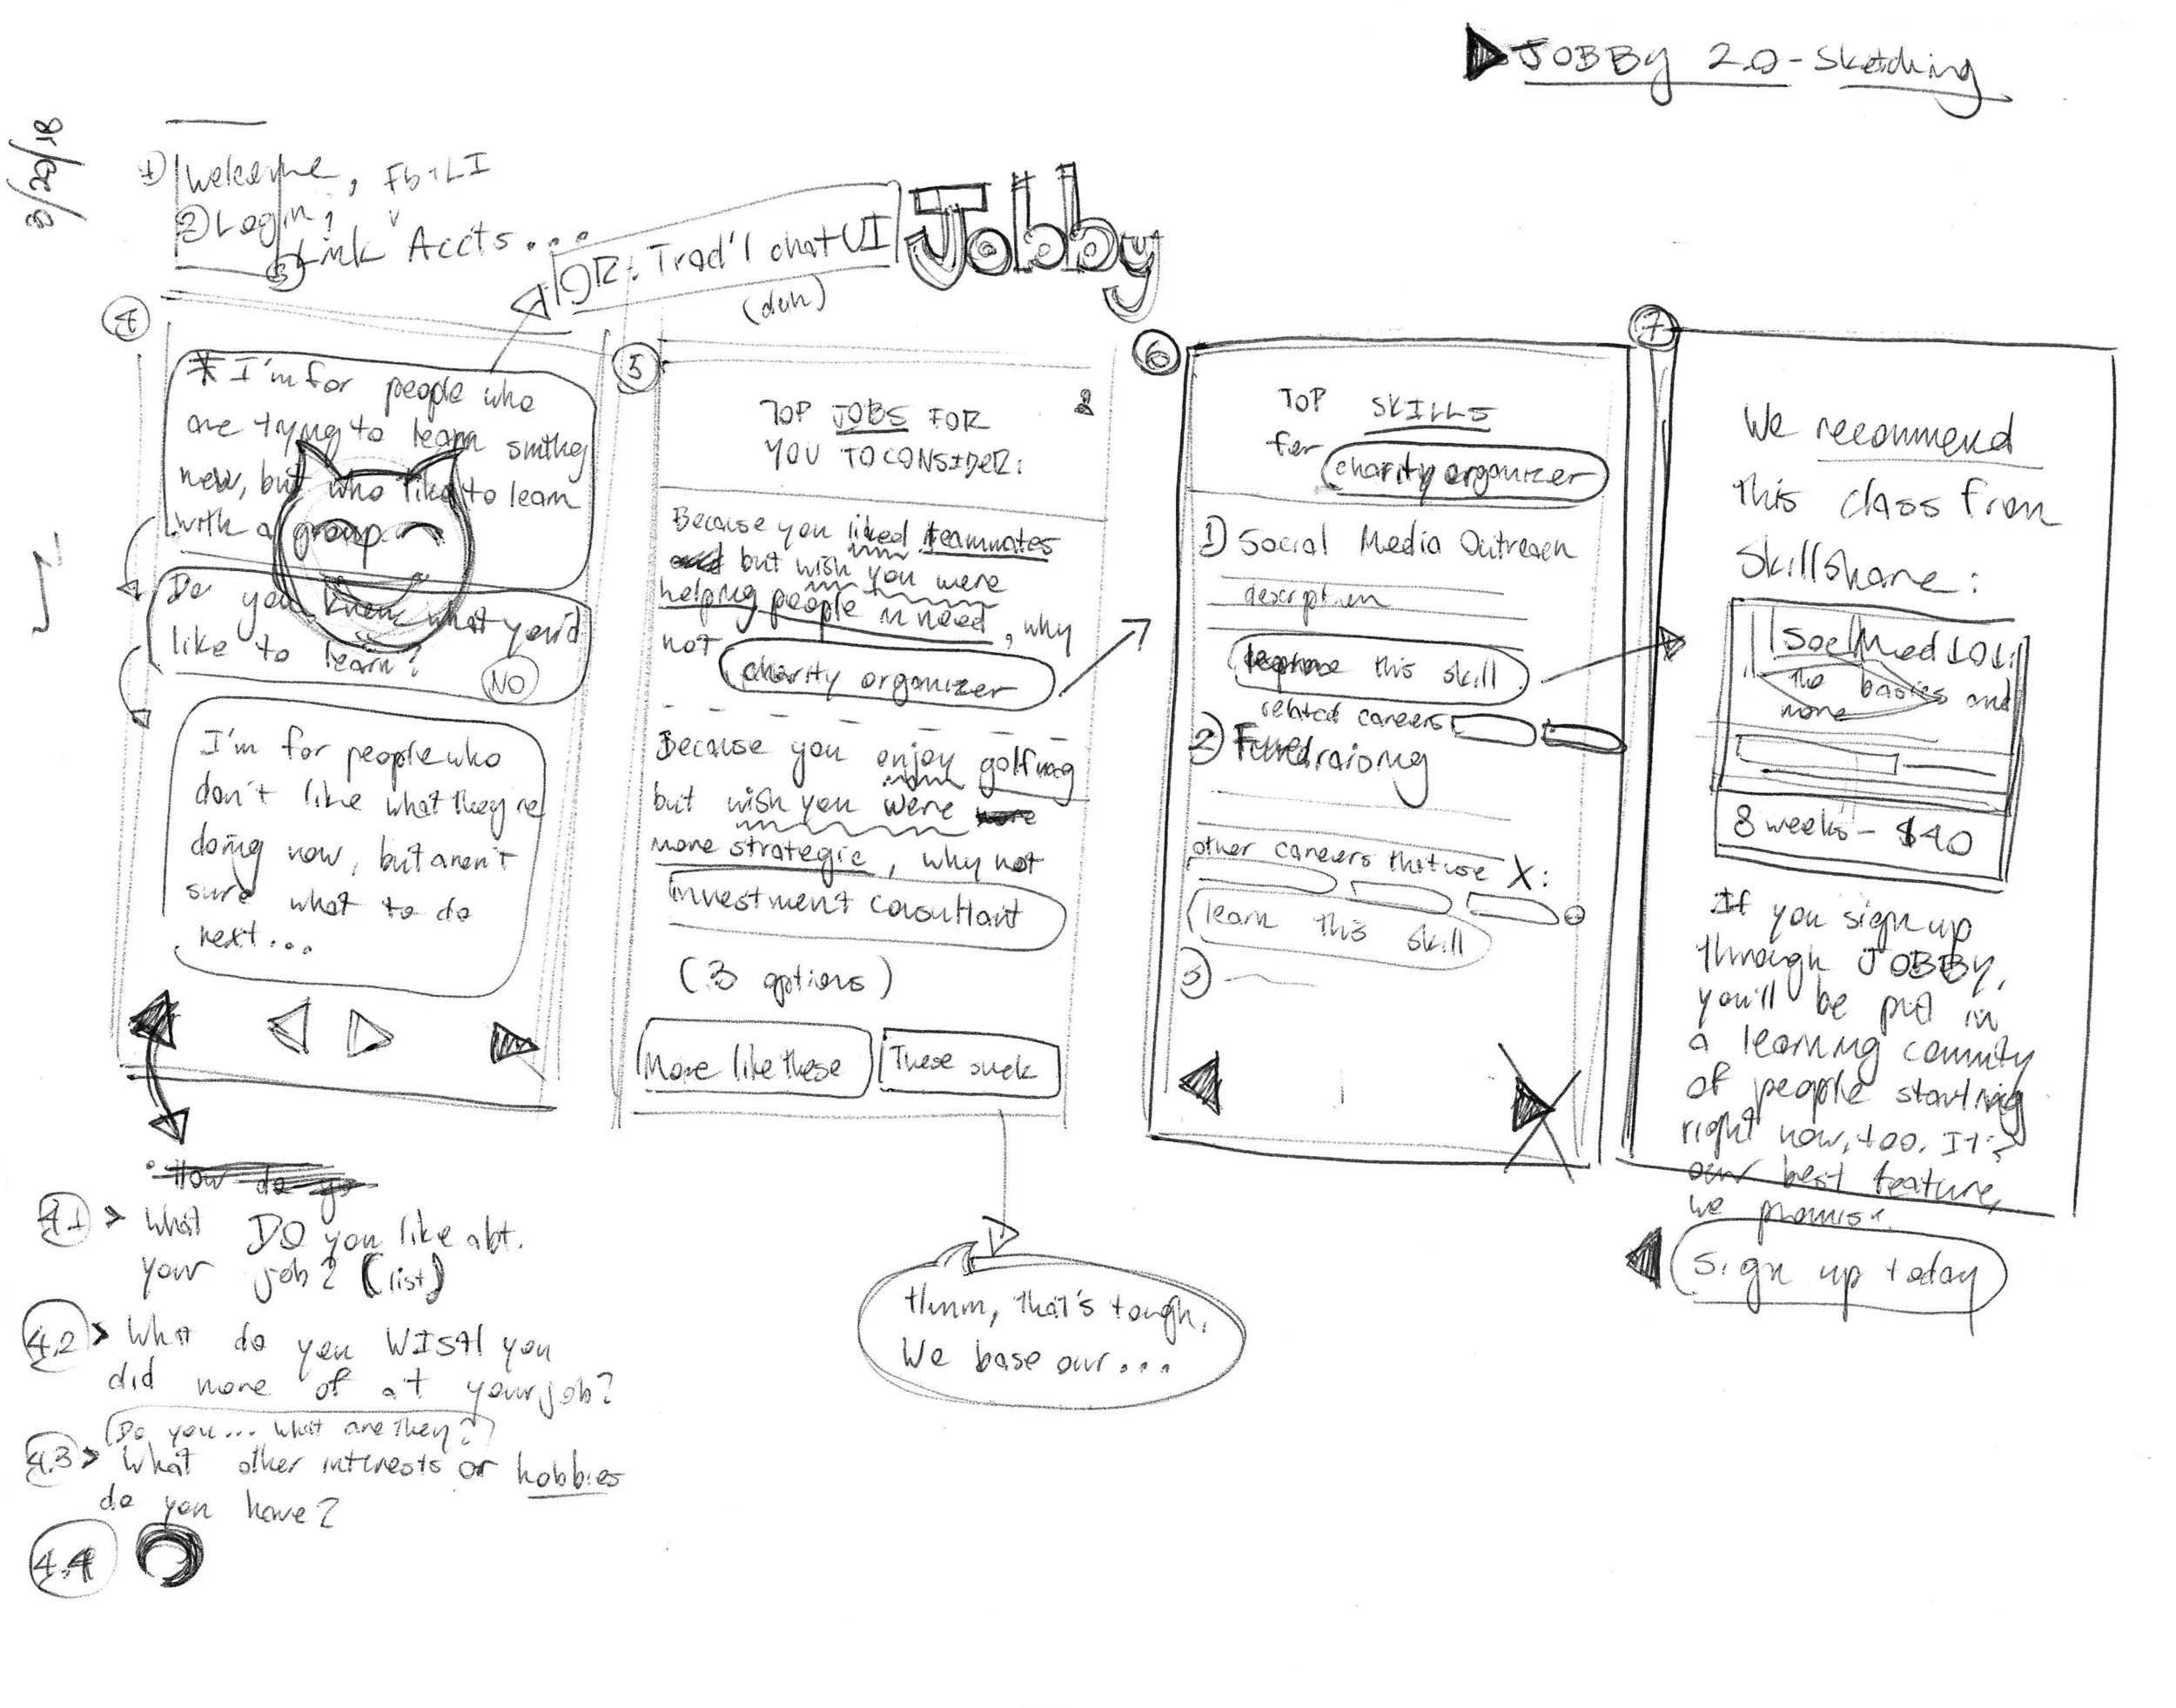 JOBBY 2.0 - Sketching
3/20/18
1) Welcome, Fb + LI
2) Login,
3) Link Accts...
OR: Trad'l chat UI
(duh)
Jobby
4
* I'm for people who
are trying to learn smthg
new, but who like to learn
with a group.
Do you know what you'd
like to learn?
NO
I'm for people who
don't like what they're
doing now, but aren't
sure what to do
next...
How do yo
4.1 > What DO you like abt.
your job? (list)
4.2 > What do you WISH you
did more of at your job?
(Do you... what are they?)
4.3 > What other interests or hobbies
do you have?
4.4
5
TOP JOBS FOR
YOU TO CONSIDER:
Because you liked teammates
and but wish you were
helping people in need, why
not charity organizer
Because you enjoy golfing
but wish you were more
more strategic, why not
investment consultant
(3 options)
More like these
These suck
Hmm, that's tough.
We base our...
6
TOP SKILLS
for charity organizer
1) Social Media Outreach
description
this skill
related careers
2) Fundraising
other careers that use X:
learn this skill
3)
7
We recommend
this class from
Skillshare:
Soc Med 101:
the basics and
more
8 weeks - $40
If you sign up
through JOBBY,
you'll be put in
a learning commity
of people starting
right now, too. It's
our best feature,
we promise.
Sign up today